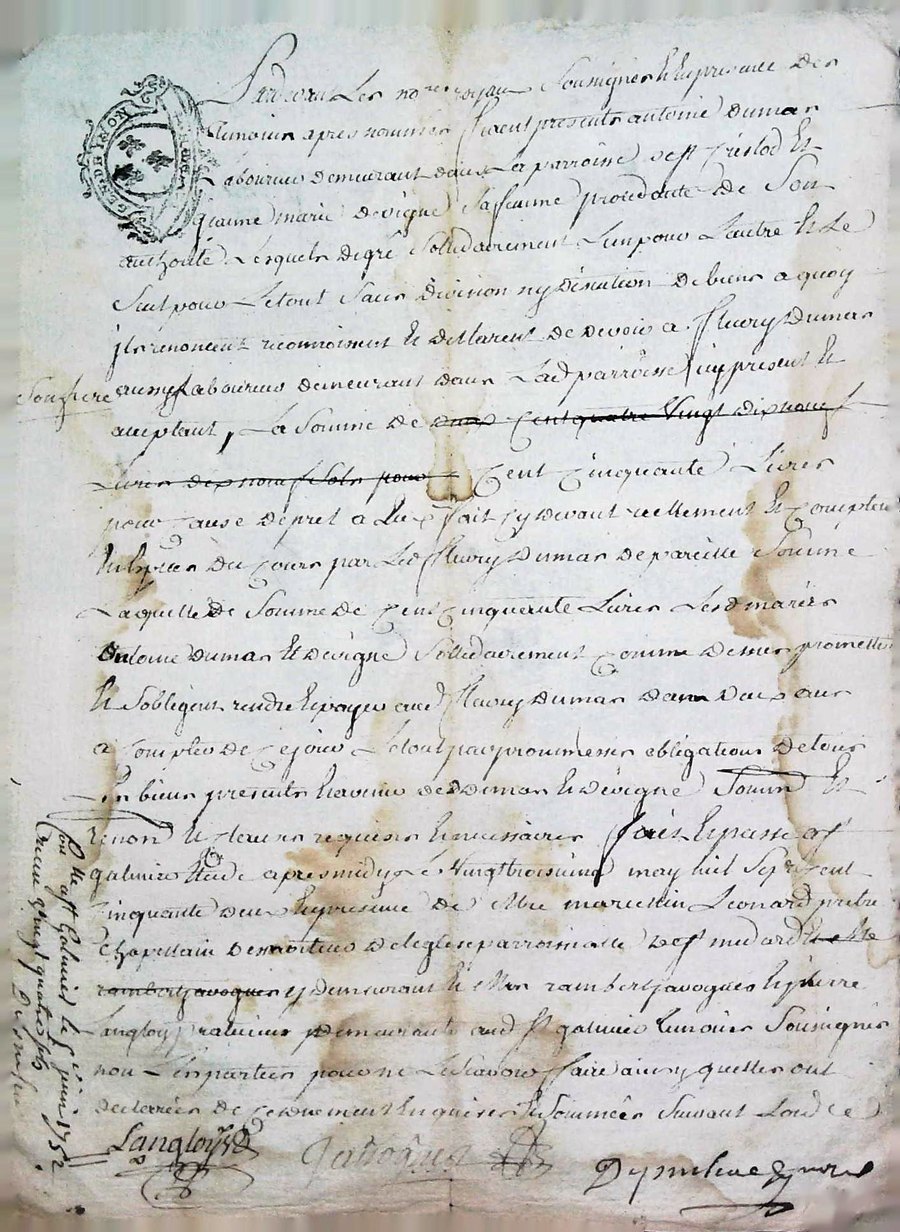 Pardevant Les no.res royaux Sousignes et En presence des
temoins apres nommes furent presents antoine Dumas
Laboureur demeurant dans La parroisse de st Cristod Et
jeanne marie devigne Sa femme procedante de Son
authorité Lesquels de gré Sollidairement Lun pour Lautre Et Le
Seul pour Le tout Sans Division ny Dénation de biens a quoy
jls renoncent reconnoissent Et declarent de devoir a fleury Dumas
aussy Laboureur demeurant dans Lad parroisse jcy present Et
acceptant, La Somme de Cent quatre Vingt dix neuf
Livres dix neuf Sols pour Cent Cinquante Livres
pour Cause de pret a Eux fait Cy devant reellement Et Comptéu
En Especes du Cours par Led fleury Dumas de pareille Somme
Laquelle de Somme de Cent Cinquante Livres Lesd mariés
antoine Dumas Et devigne Sollidairement Comme dessus promettent
Et Sobligent rendre Et payer aud fleury Dumas dans Deux ans
a Compter de Ce jour Le tout par promesses obligations de tous
Les biens presents Et avenir desd Dumas Et devigne Soumis Et
renon Et clauses requises Et necessaires fait Et passé a st
galmier Etude apres midy Le Vingt troisieme may mil Sept Cent
Cinquante deux En presence de Mre marcellin Leonard pretre
Chapellain de leglise parroissialle de st medard
rambert javogues y demeurant Et Mre rambert javogues Et pierre
Langloy praticiens demeurants aud st galmier temoins Sousignes
non Les parties pour ne Le Scavoir faire ainsy quelles ont
declarées de Ce duement Enquises Et Sommées Suivant Londce
Langloys Javogues
st Galmier le 5 juin 1752
vingt quatre sols